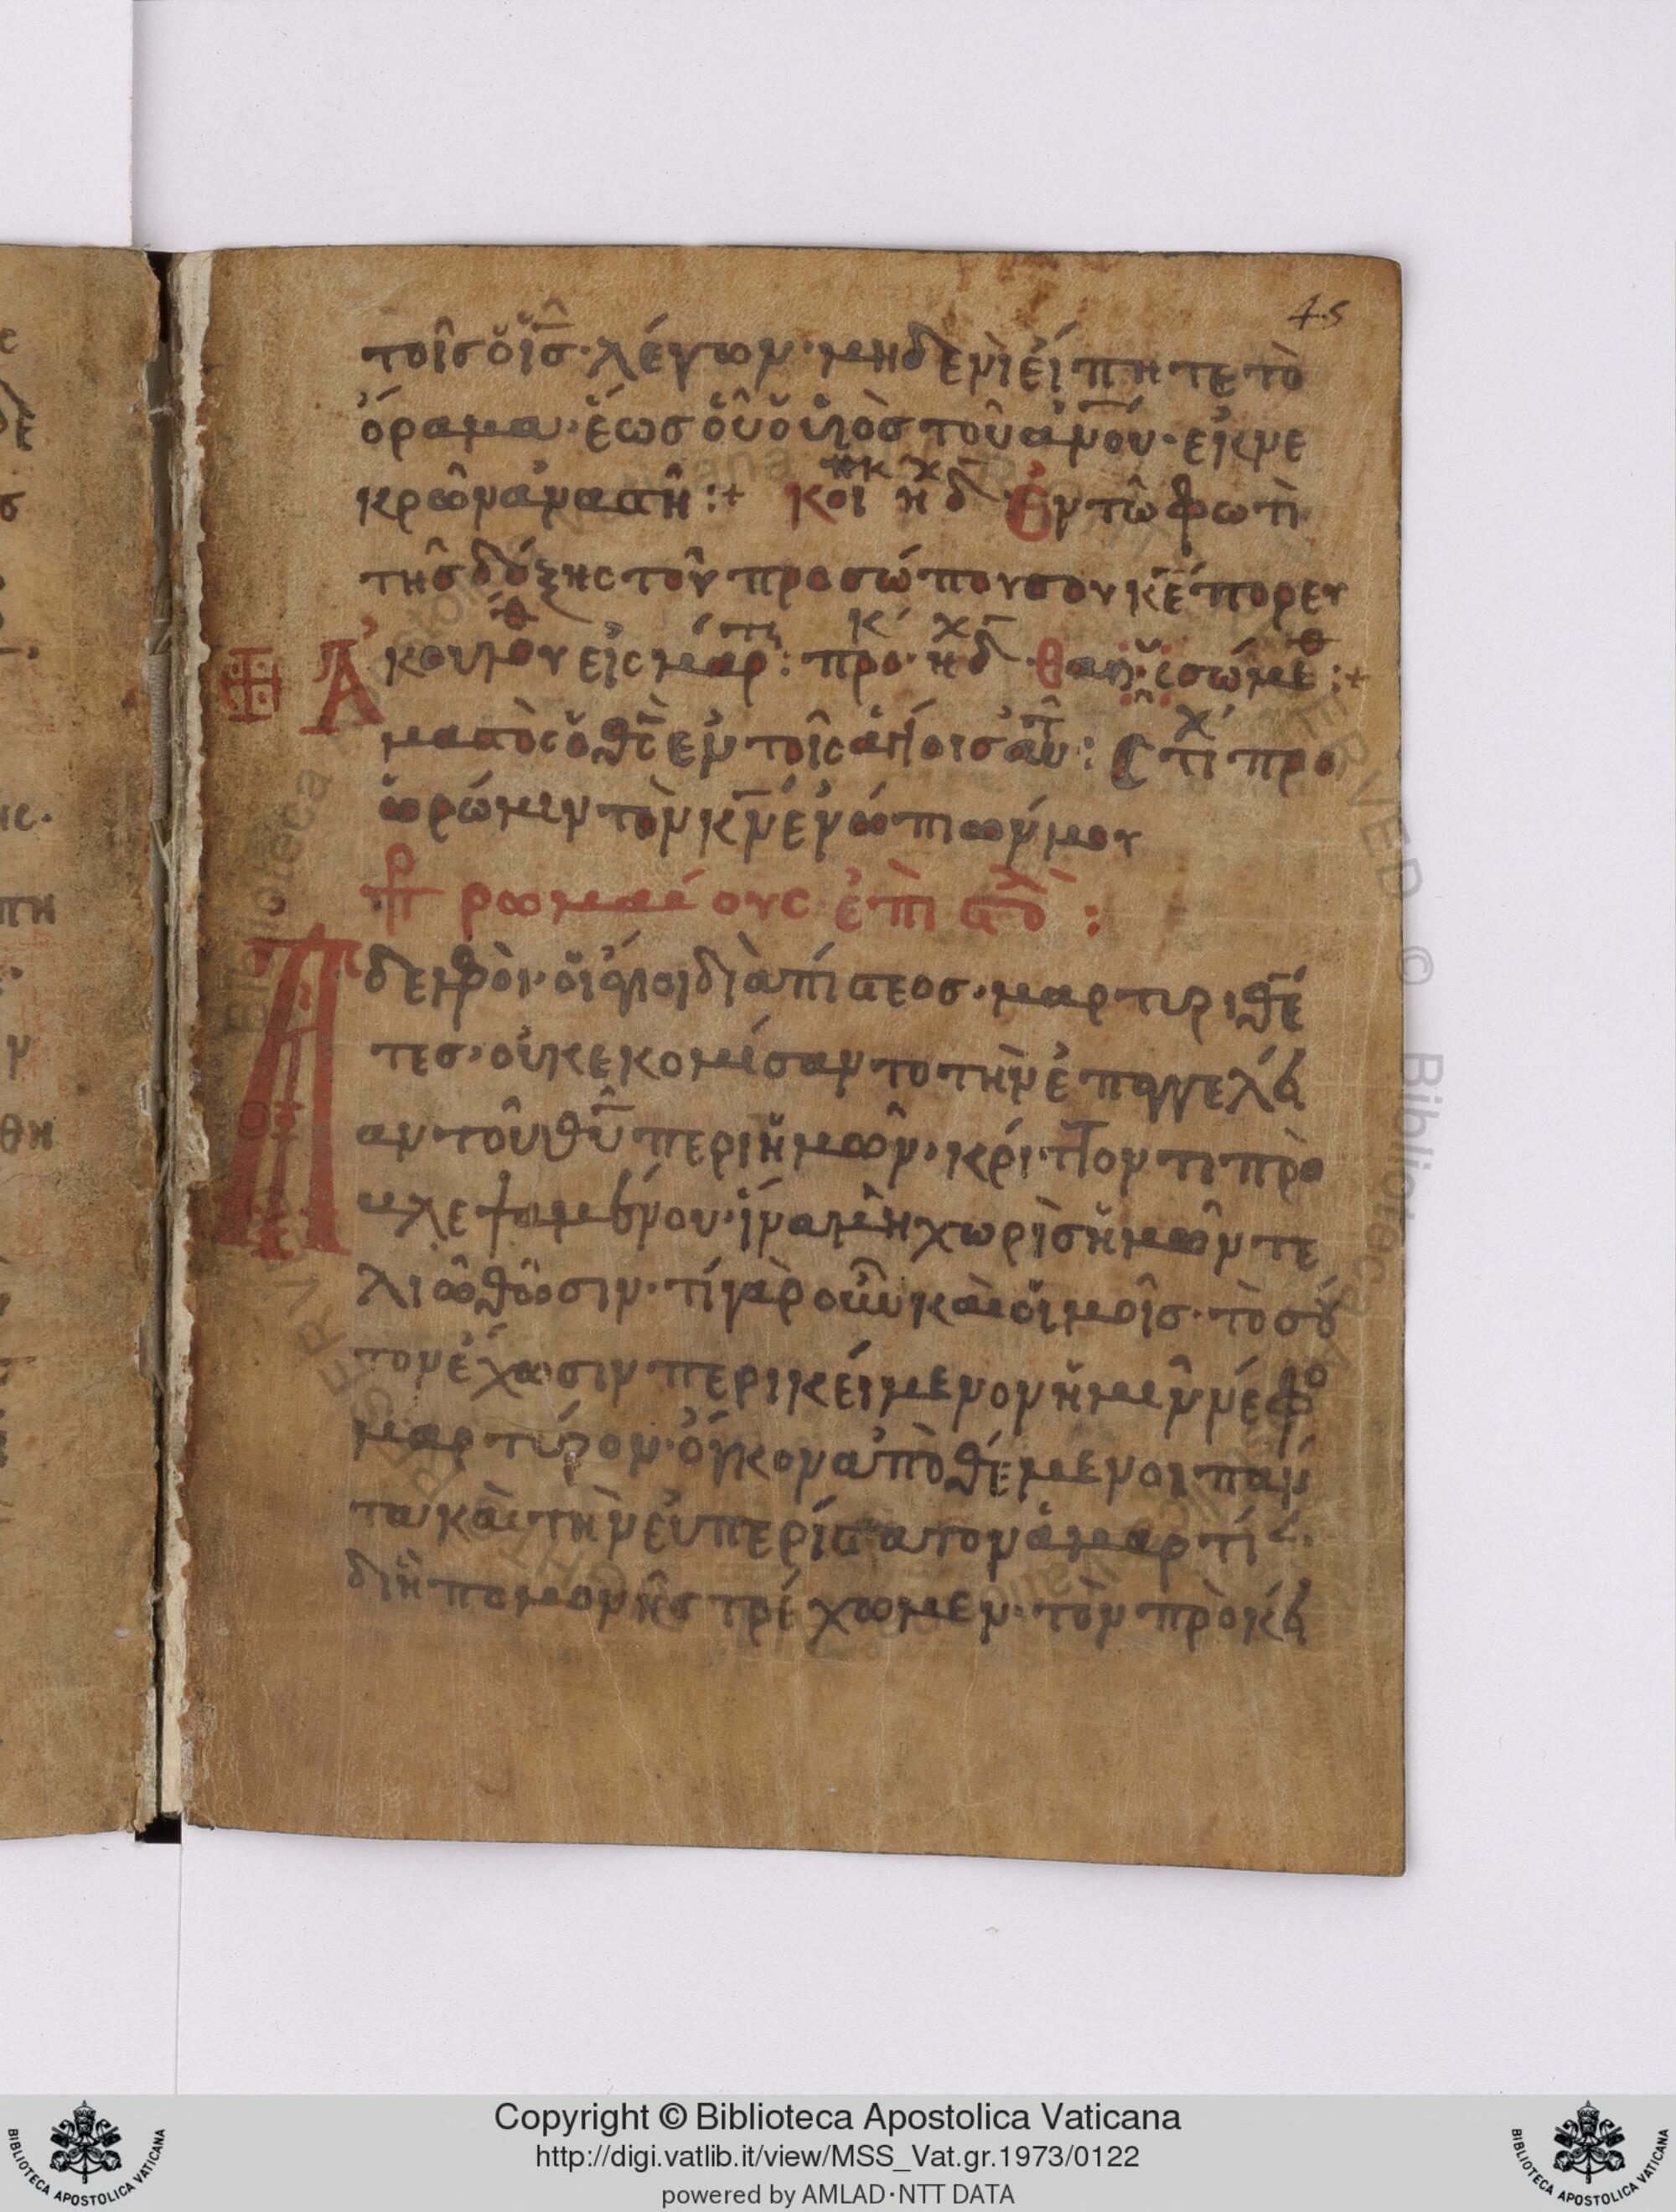 45
τοῖς ὁ ι̅ς̅· λέγων· μηδενὶ εἴπητε τὸ
ὅραμα· ἕως οὗ ὁ υἱὸς τοῦ α̅ν̅ου· εἰκ νε
κρῶν ἀναστῆ :+ κοι ἦχ δ Ἐν τῶ φωτὶ
τῆς δόξης τοῦ προσώπου σου κ̅ε̅ πορευ
Ἀκουλου εἰς μαρ : προκ ἦχ δ Θα
μαστὸς ὁ θ̅ς̅ ἐν τοῖς ἁγίοις αὐτ : στίχ προ
ὡρώμιν τὸν κ̅ν̅ ἐνώπιων μου
ρωμαίους
Ἀδελφοὶ· οἱ ἅγιοι διὰ πίστεος· μαρτυριθέ
τες· οὐκ εκομίσαντο τὴν ἐπαγγελεί
αν τοῦ θ̅υ̅ περὶ ἡμῶν· κρίττον τι προ
βλεψαμένου· ἵνα μὴ χωρὶς ἡμῶν τε
λιωθῶσιν· τίγαρ οὖν καὶ οἱμοῖς· τὸσοῦ
τον ἔχωσιν περικείμενον ἡμῖν νέφο
μαρτύρον· ὄγκον ἀποθέμενοι πάν
τα καὶ τὴν ἐυπερίστατον ἁμαρτί
δι ἡπομονῆς τρέχωμεν· τὸν πρὸκεί
Copyright © Biblioteca Apostolica Vaticana
http://digi.vatlib.it/view/MSS_Vat.gr.1973/0122
powered by AMLAD·NTT DATA
BIBLIOTECA APOSTOLICA VATICANA
BIBLIOTECA APOSTOLICA VATICANA